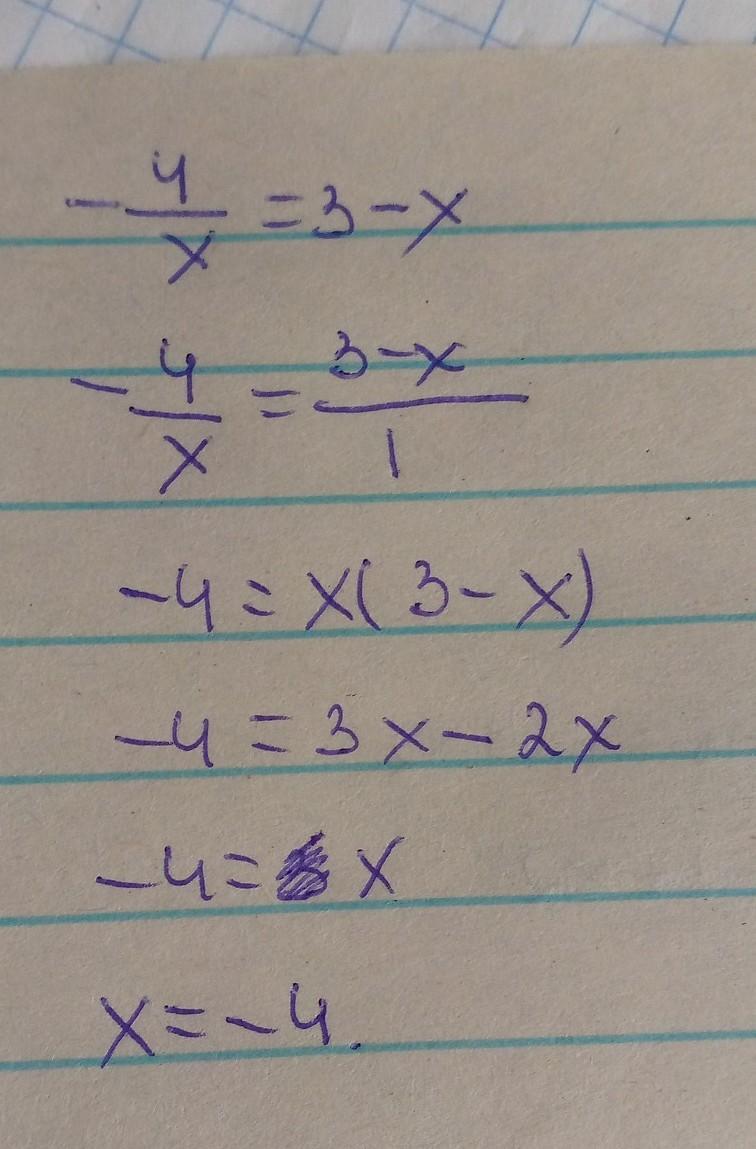 -4/x = 3-x
-4/x = (3-x)/1
-4 = x(3-x)
-4 = 3x - 2x
-4 = x
x = -4.